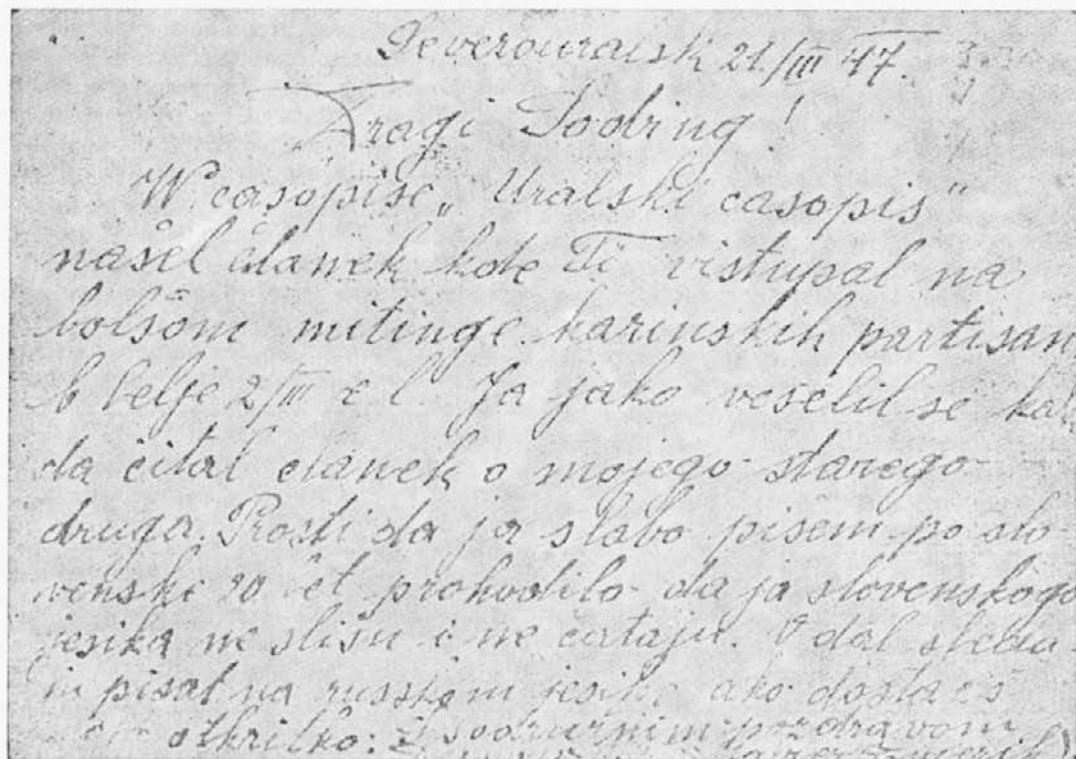 Severouralsk 21./III 47.
Dragi Sodrug!
W casopise „Uralski casopis"
našel članek kde Ti vistupal na
bolšom mitinge karinskih partisan
b Celje 2/III t l. Ja jako veselil se kak
da čital članek o mojego starego
druga. Prosti da ja slabo pišem po slo-
venski 20 let prohodilo da ja slovenskogo
jesika ne slišu i ne čitaju. V dal
m pisal na russkom jesike ako dostaeš
otkritko: Z sodružnim pozdravom